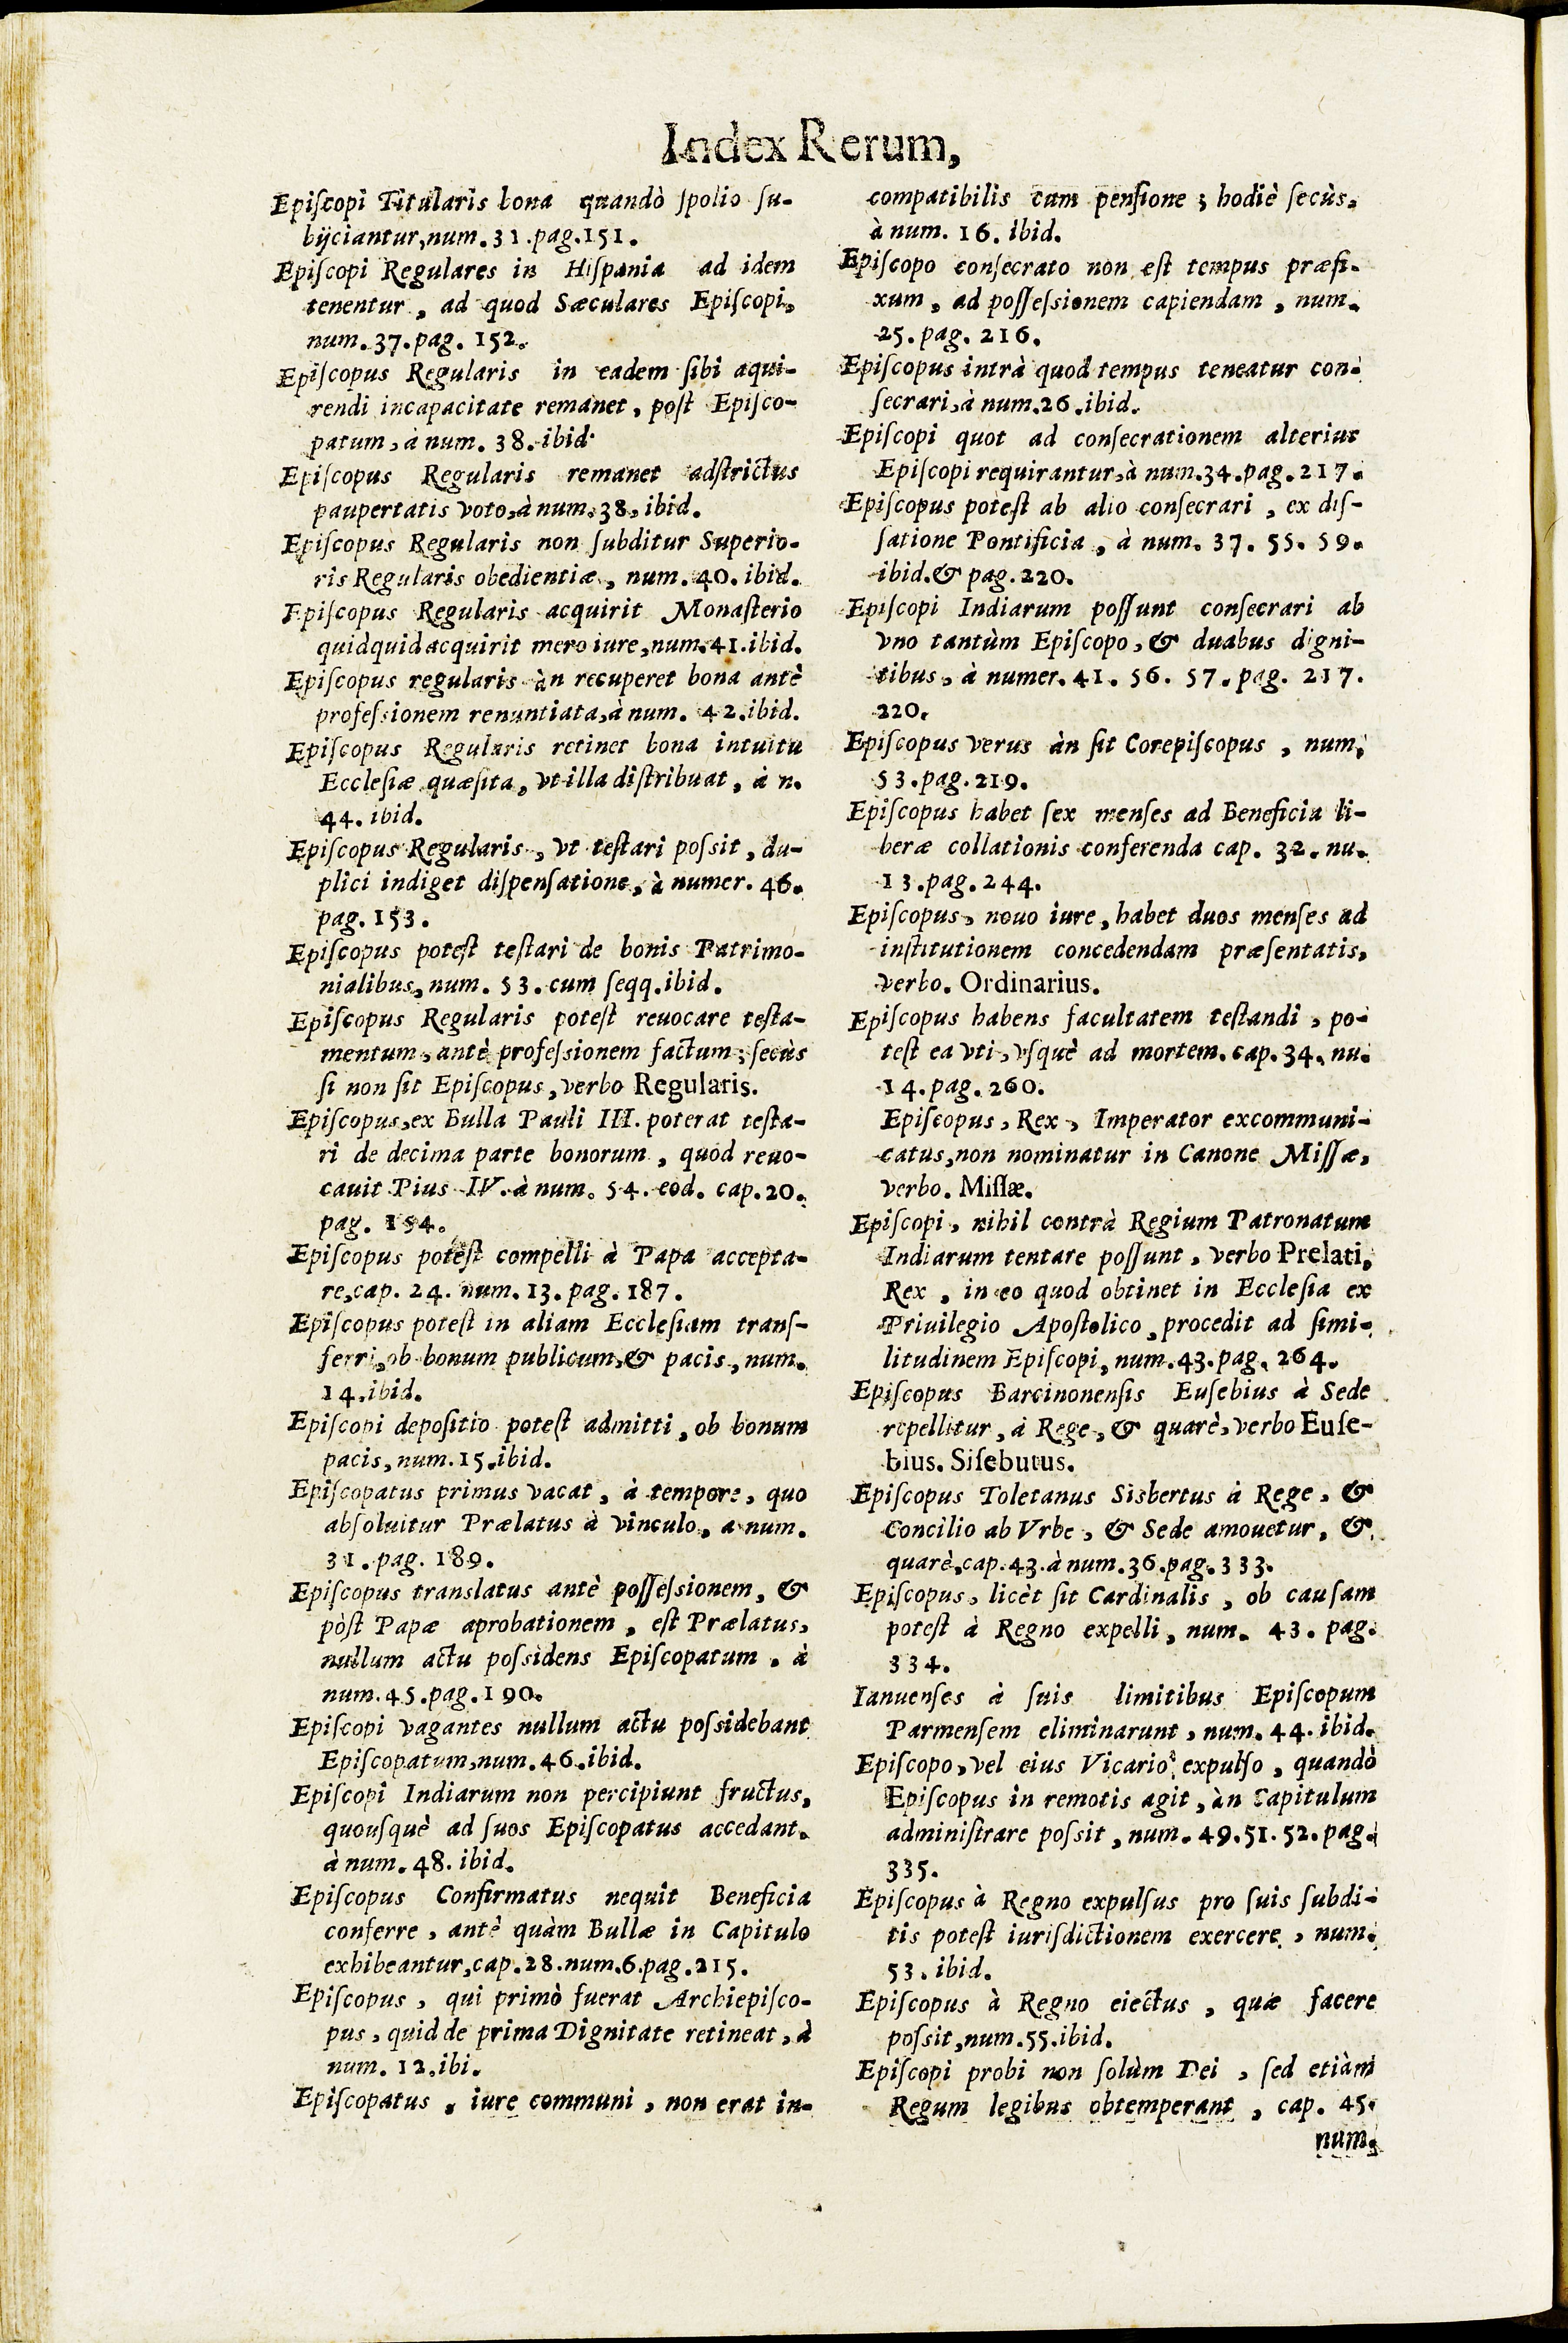 Index Rerum,
Epiſcopi Titularis bona quandò ſpolio ſu-
bijciantur, num. 31. pag. 151.
Epiſcopi Regulares in Hiſpania ad idem
tenentur, ad quod Sæculares Epiſcopi,
num. 37. pag. 152.
Epiſcopus Regularis in eadem ſibi aqui-
rendi incapacitate remanet, poſt Epiſco-
patum, à num. 38. ibid.
Epiſcopus Regularis remanet adſtrictus
paupertatis voto, à num. 38, ibid.
Epiſcopus Regularis non ſubditur Superio-
ris Regularis obedientiæ, num. 40. ibid.
Epiſcopus Regularis acquirit Monaſterio
quidquid acquirit mero iure, num. 41. ibid.
Epiſcopus regularis àn recuperet bona antè
profeſsionem renuntiata, à num. 42. ibid.
Epiſcopus Regularis retinet bona intuitu
Eccleſiæ quæſita, vt illa diſtribuat, à n.
44. ibid.
Epiſcopus Regularis, vt teſtari poſsit, du-
plici indiget diſpenſatione, à numer. 46.
pag. 153.
Epiſcopus poteſt teſtari de bonis Patrimo-
nialibus, num. 53. cum ſeqq. ibid.
Epiſcopus Regularis poteſt reuocare teſta-
mentum, antè profeſsionem factum; ſecùs
ſi non ſit Epiſcopus, verbo Regularis.
Epiſcopus, ex Bulla Pauli III. poterat teſta-
ri de decima parte bonorum, quod reuo-
cauit Pius IV. à num. 54. eod. cap. 20.
pag. 154.
Epiſcopus poteſt compelli à Papa accepta-
re, cap. 24. num. 13. pag. 187.
Epiſcopus poteſt in aliam Eccleſiam tranſ-
ferri, ob bonum publicum, & pacis, num.
14. ibid.
Epiſcopi depoſitio poteſt admitti, ob bonum
pacis, num. 15. ibid.
Epiſcopatus primus vacat, à tempore, quo
abſoluitur Prælatus à vinculo, a num.
31. pag. 189.
Epiſcopus translatus antè poſſeſsionem, &
pòſt Papæ aprobationem, eſt Prælatus,
nullum actu poſsidens Epiſcopatum, à
num. 45. pag. 190.
Epiſcopi vagantes nullum actu poſsidebant
Epiſcopatum, num. 46. ibid.
Epiſcopi Indiarum non percipiunt fructus,
quouſquè ad ſuos Epiſcopatus accedant.
à num. 48. ibid.
Epiſcopus Confirmatus nequit Beneficia
conferre, antè quàm Bullæ in Capitulo
exhibeantur, cap. 28. num. 6. pag. 215.
Epiſcopus, qui primò fuerat Archiepiſco-
pus, quid de prima Dignitate retineat, à
num. 12. ibi.
Epiſcopatus, iure communi, non erat in-
compatibilis cum penſione; hodiè ſecùs,
à num. 16. ibid.
Epiſcopo conſecrato non eſt tempus præfi-
xum, ad poſſeſsionem capiendam, num.
25. pag. 216.
Epiſcopus intrà quod tempus teneatur con-
ſecrari, à num. 26. ibid.
Epiſcopi quot ad conſecrationem alterius
Epiſcopi requirantur, à num. 34. pag. 217.
Epiſcopus poteſt ab alio conſecrari, ex diſ-
ſatione Pontificia, à num. 37. 55. 59.
ibid. & pag. 220.
Epiſcopi Indiarum poſſunt conſecrari ab
vno tantùm Epiſcopo, & duabus digni-
tibus, à numer. 41. 56. 57. pag. 217.
220.
Epiſcopus verus àn ſit Corepiſcopus, num.
53. pag. 219.
Epiſcopus habet ſex menſes ad Beneficia li-
beræ collationis conferenda cap. 32. nu.
13. pag. 244.
Epiſcopus, nouo iure, habet duos menſes ad
inſtitutionem concedendam præſentatis,
verbo. Ordinarius.
Epiſcopus habens facultatem teſtandi, po-
teſt ea vti, vſquè ad mortem. cap. 34. nu.
14. pag. 260.
Epiſcopus, Rex, Imperator excommuni-
catus, non nominatur in Canone Miſſæ,
verbo. Miſſæ.
Epiſcopi, nihil contrà Regium Patronatum
Indiarum tentare poſſunt, verbo Prelati,
Rex, in eo quod obtinet in Eccleſia ex
Priuilegio Apoſtolico, procedit ad ſimi-
litudinem Epiſcopi, num. 43. pag. 264.
Epiſcopus Barcinonenſis Euſebius à Sede
repellitur, à Rege, & quarè, verbo Euſe-
bius. Siſebutus.
Epiſcopus Toletanus Sisbertus à Rege, &
Concilio ab Vrbe, & Sede amouetur, &
quarè, cap. 43. à num. 36. pag. 333.
Epiſcopus, licèt ſit Cardinalis, ob cauſam
poteſt à Regno expelli, num. 43. pag.
334.
Ianuenſes à ſuis limitibus Epiſcopum
Parmenſem eliminarunt, num. 44. ibid.
Epiſcopo, vel eius Vicario expulſo, quandò
Epiſcopus in remotis agit, àn Capitulum
adminiſtrare poſsit, num. 49. 51. 52. pag.
335.
Epiſcopus à Regno expulſus pro ſuis ſubdi-
tis poteſt iuriſdictionem exercere, num.
53. ibid.
Epiſcopus à Regno eiectus, quæ facere
poſsit, num. 55. ibid.
Epiſcopi probi non ſolùm Dei, ſed etiàm
Regum legibus obtemperant, cap. 45.
num.